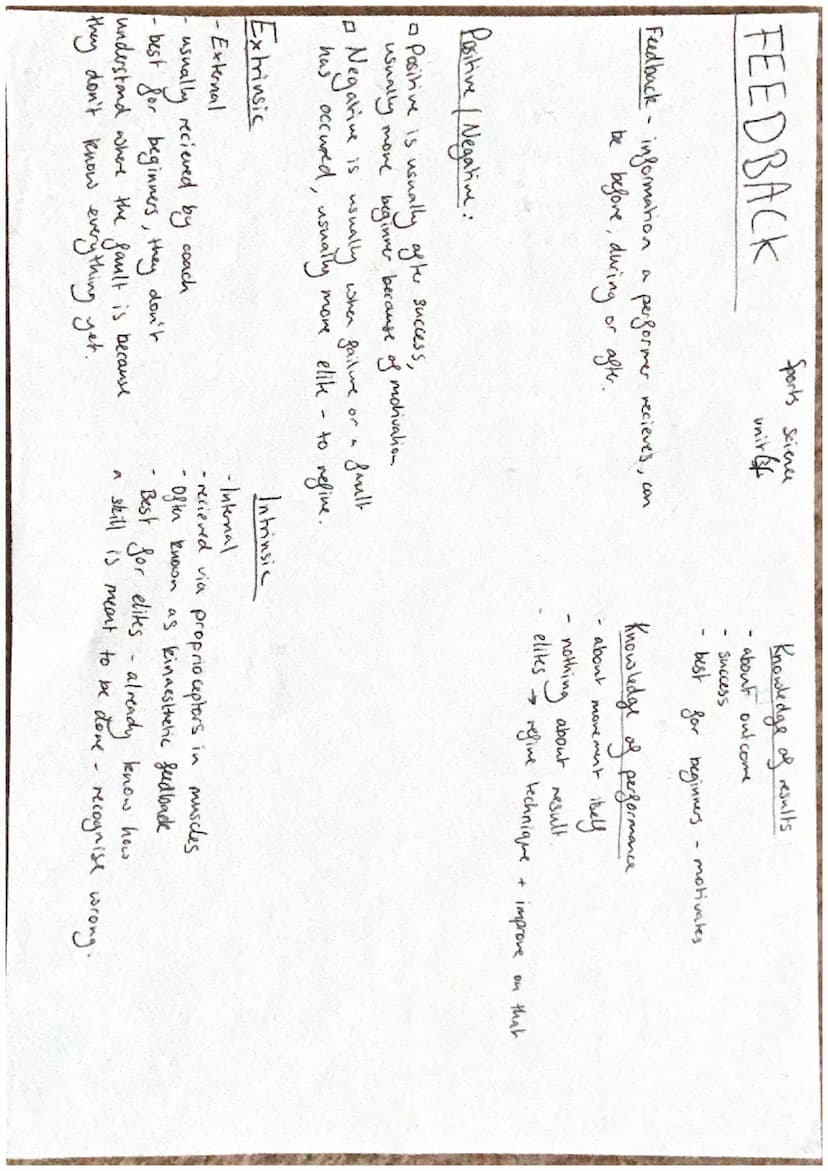 FEEDBACK
Sports science
unit
Feedback - information a performer recieves, can
be before, during or after.
Knowledge of results:
- about outcome
- success
- best for beginners - motivates
Knowledge of performance
- about movement itself
- nothing about result
- elites → refine technique + improve on that
Positive / Negative:
□ Positive is usually after success,
usually more beginner because of motivation
□ Negative is usually when failure or a fault
has occured, usually more elite - to refine.
Extrinsic
- External
- usually recieved by coach
- best for beginners, they don't
understand where the fault is because
they don't know everything yet.
Intrinsic
- Internal
- recieved via proprioceptors in muscles
- Often known as kinaesthetic feedback
- Best for elites - already know how
a skill is meant to be done - recognise wrong.